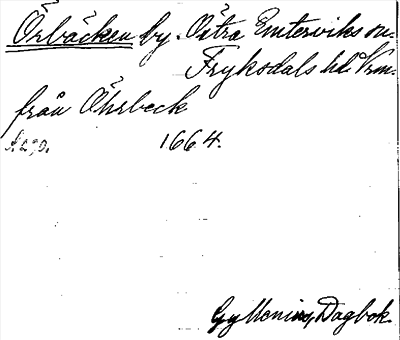 Örbäcken by. Östra Emterviks sn.
Fryksdals hd. Vrm.
från Öhrbeck
1664.
Gyllenius, Dagbok.